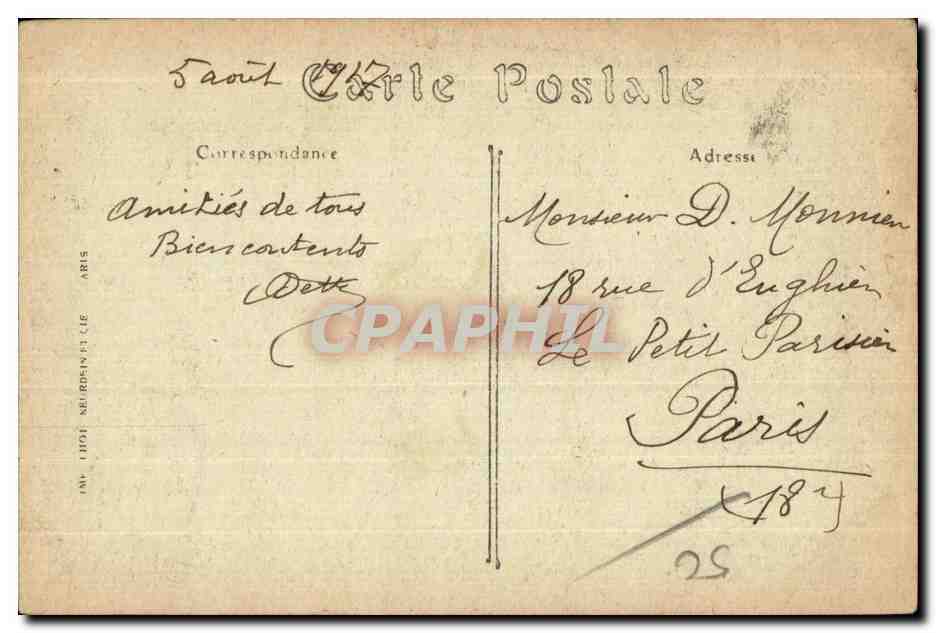 5 août 1917
Carte Postale
Correspondance
Adresse
Amitiés de tous
Bien contents
Dette
Monsieur D. Monnier
18 rue d'Enghien
Le Petit Parisien
Paris
(18e)
25
IMP. PHOT. NEURDEIN ET CIE PARIS
CPAPHIL